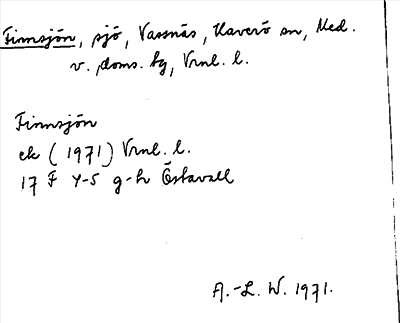 Finnsjön, sjö, Vassnäs, Haverö sn, Med.
v. doms. hg, Vrnl. l.
Finnsjön
ek (1971) Vrnl. l.
17 F Y-S g-h Östavall
A.-L. W. 1971.